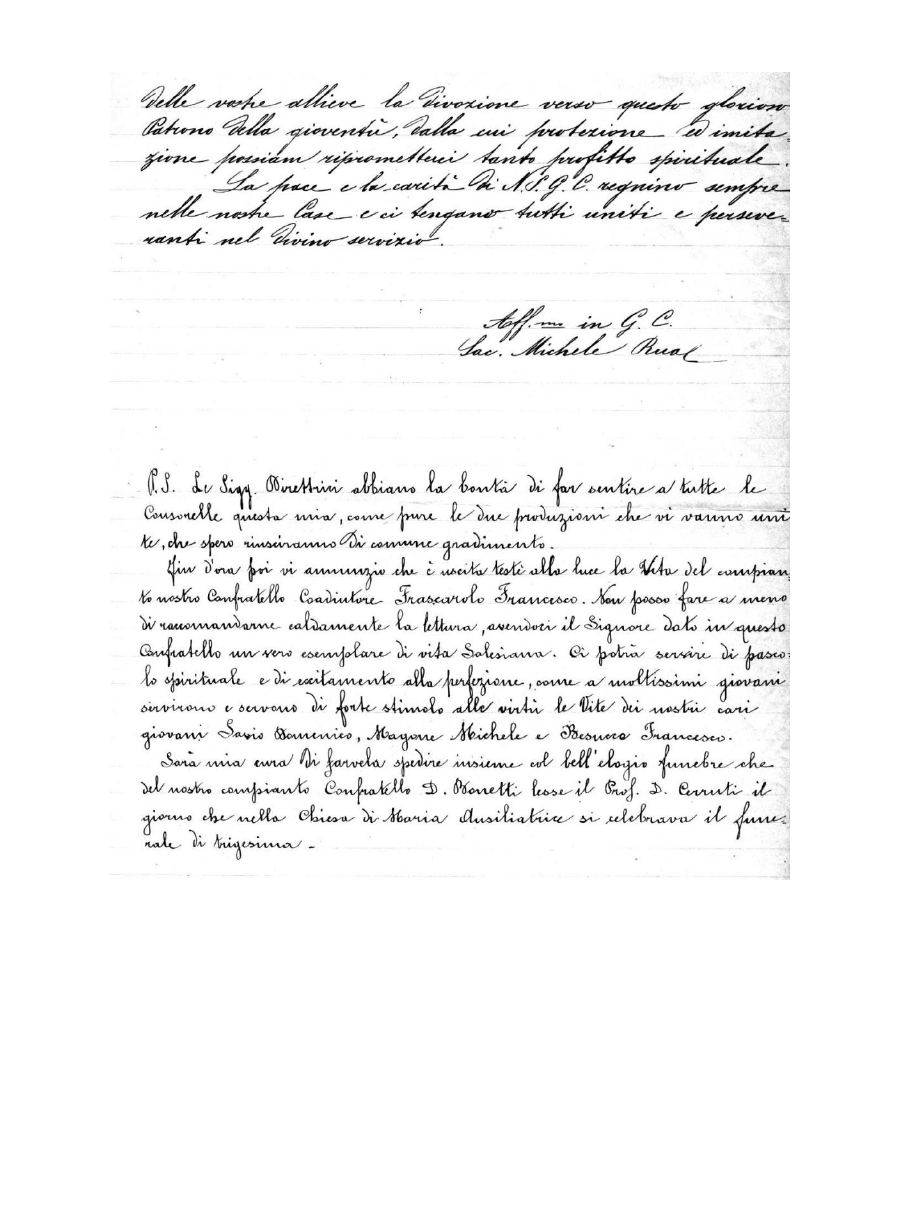 delle vostre allieve la divozione verso questo glorioso
Patrono della gioventù, dalla cui protezione ed imita-
zione possiam riprometterci tanto profitto spirituale.
La pace e la carità di N.S.G.C. regnino sempre
nelle nostre Case e ci tengano tutti uniti e perseve=
ranti nel divino servizio.
Aff.mo in G. C.
Sac. Michele Rua
P.S. Le Sigg. Direttrici abbiano la bontà di far sentire a tutte le
Consorelle questa mia, come pure le due produzioni che vi vanno uni
te, che spero riusciranno di comune gradimento.
Fin d'ora poi vi annunzio che è uscita testè alla luce la Vita del compian
to nostro Confratello Coadiutore Frascarolo Francesco. Non posso fare a meno
di raccomandarne caldamente la lettura, avendoci il Signore dato in questo
Confratello un vero esemplare di vita Salesiana. Ci potrà servire di pasco-
lo spirituale e di eccitamento alla perfezione, come a moltissimi giovani
servirono e servono di forte stimolo alle virtù le Vite dei nostri cari
giovani Savio Domenico, Magone Michele e Besucco Francesco.
Sarà mia cura di farvela spedire insieme col bell'elogio funebre che
del nostro compianto Confratello D. Bonetti lesse il Prof. D. Cerruti il
giorno che nella Chiesa di Maria Ausiliatrice si celebrava il fune=
rale di trigesima -